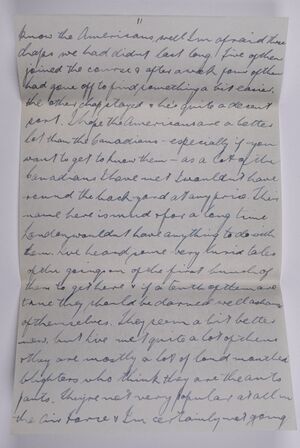 11
know the Americans well I'm afraid those
chaps we had didn't last long. Five of them
joined the course & after a week four of them
had gone off to find something a bit easier.
the other chap stayed & he's quite a decent
sort. I hope the Americans are a better
lot than the Canadians - especially if you
want to get to know them - as a lot of the
Canadians I have met I wouldn't have
round the back yard at any price. Their
name here is mud & for a long time
London wouldn't have anything to do with
them. I've heard some very lurid tales
of the goings on of the first bunch of
them to get here & if a tenth of them are
true they should be darned well ashamed
of themselves. They seem a bit better
now, but I've met quite a lot of them
& they are mostly a lot of loud mouthed
blighters who think they are the ants
pants. They're not very popular at all in
the Air Force & I'm certainly not going